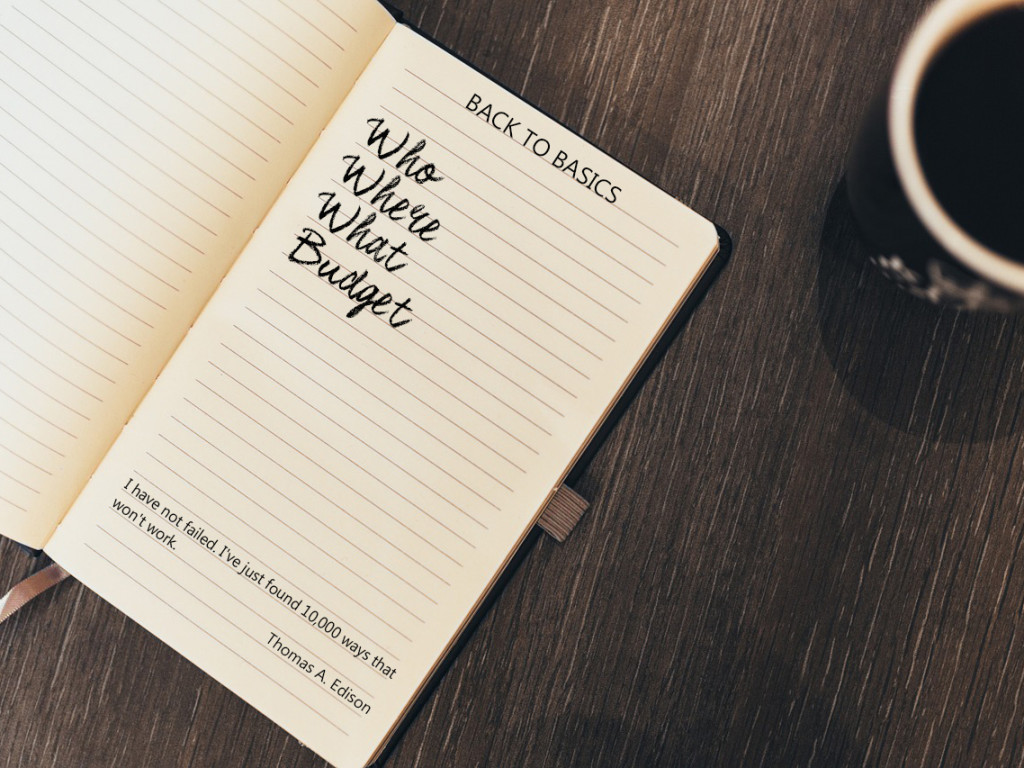 BACK TO BASICS
Who
Where
What
Budget
I have not failed. I've just found 10,000 ways that
won't work.
Thomas A. Edison